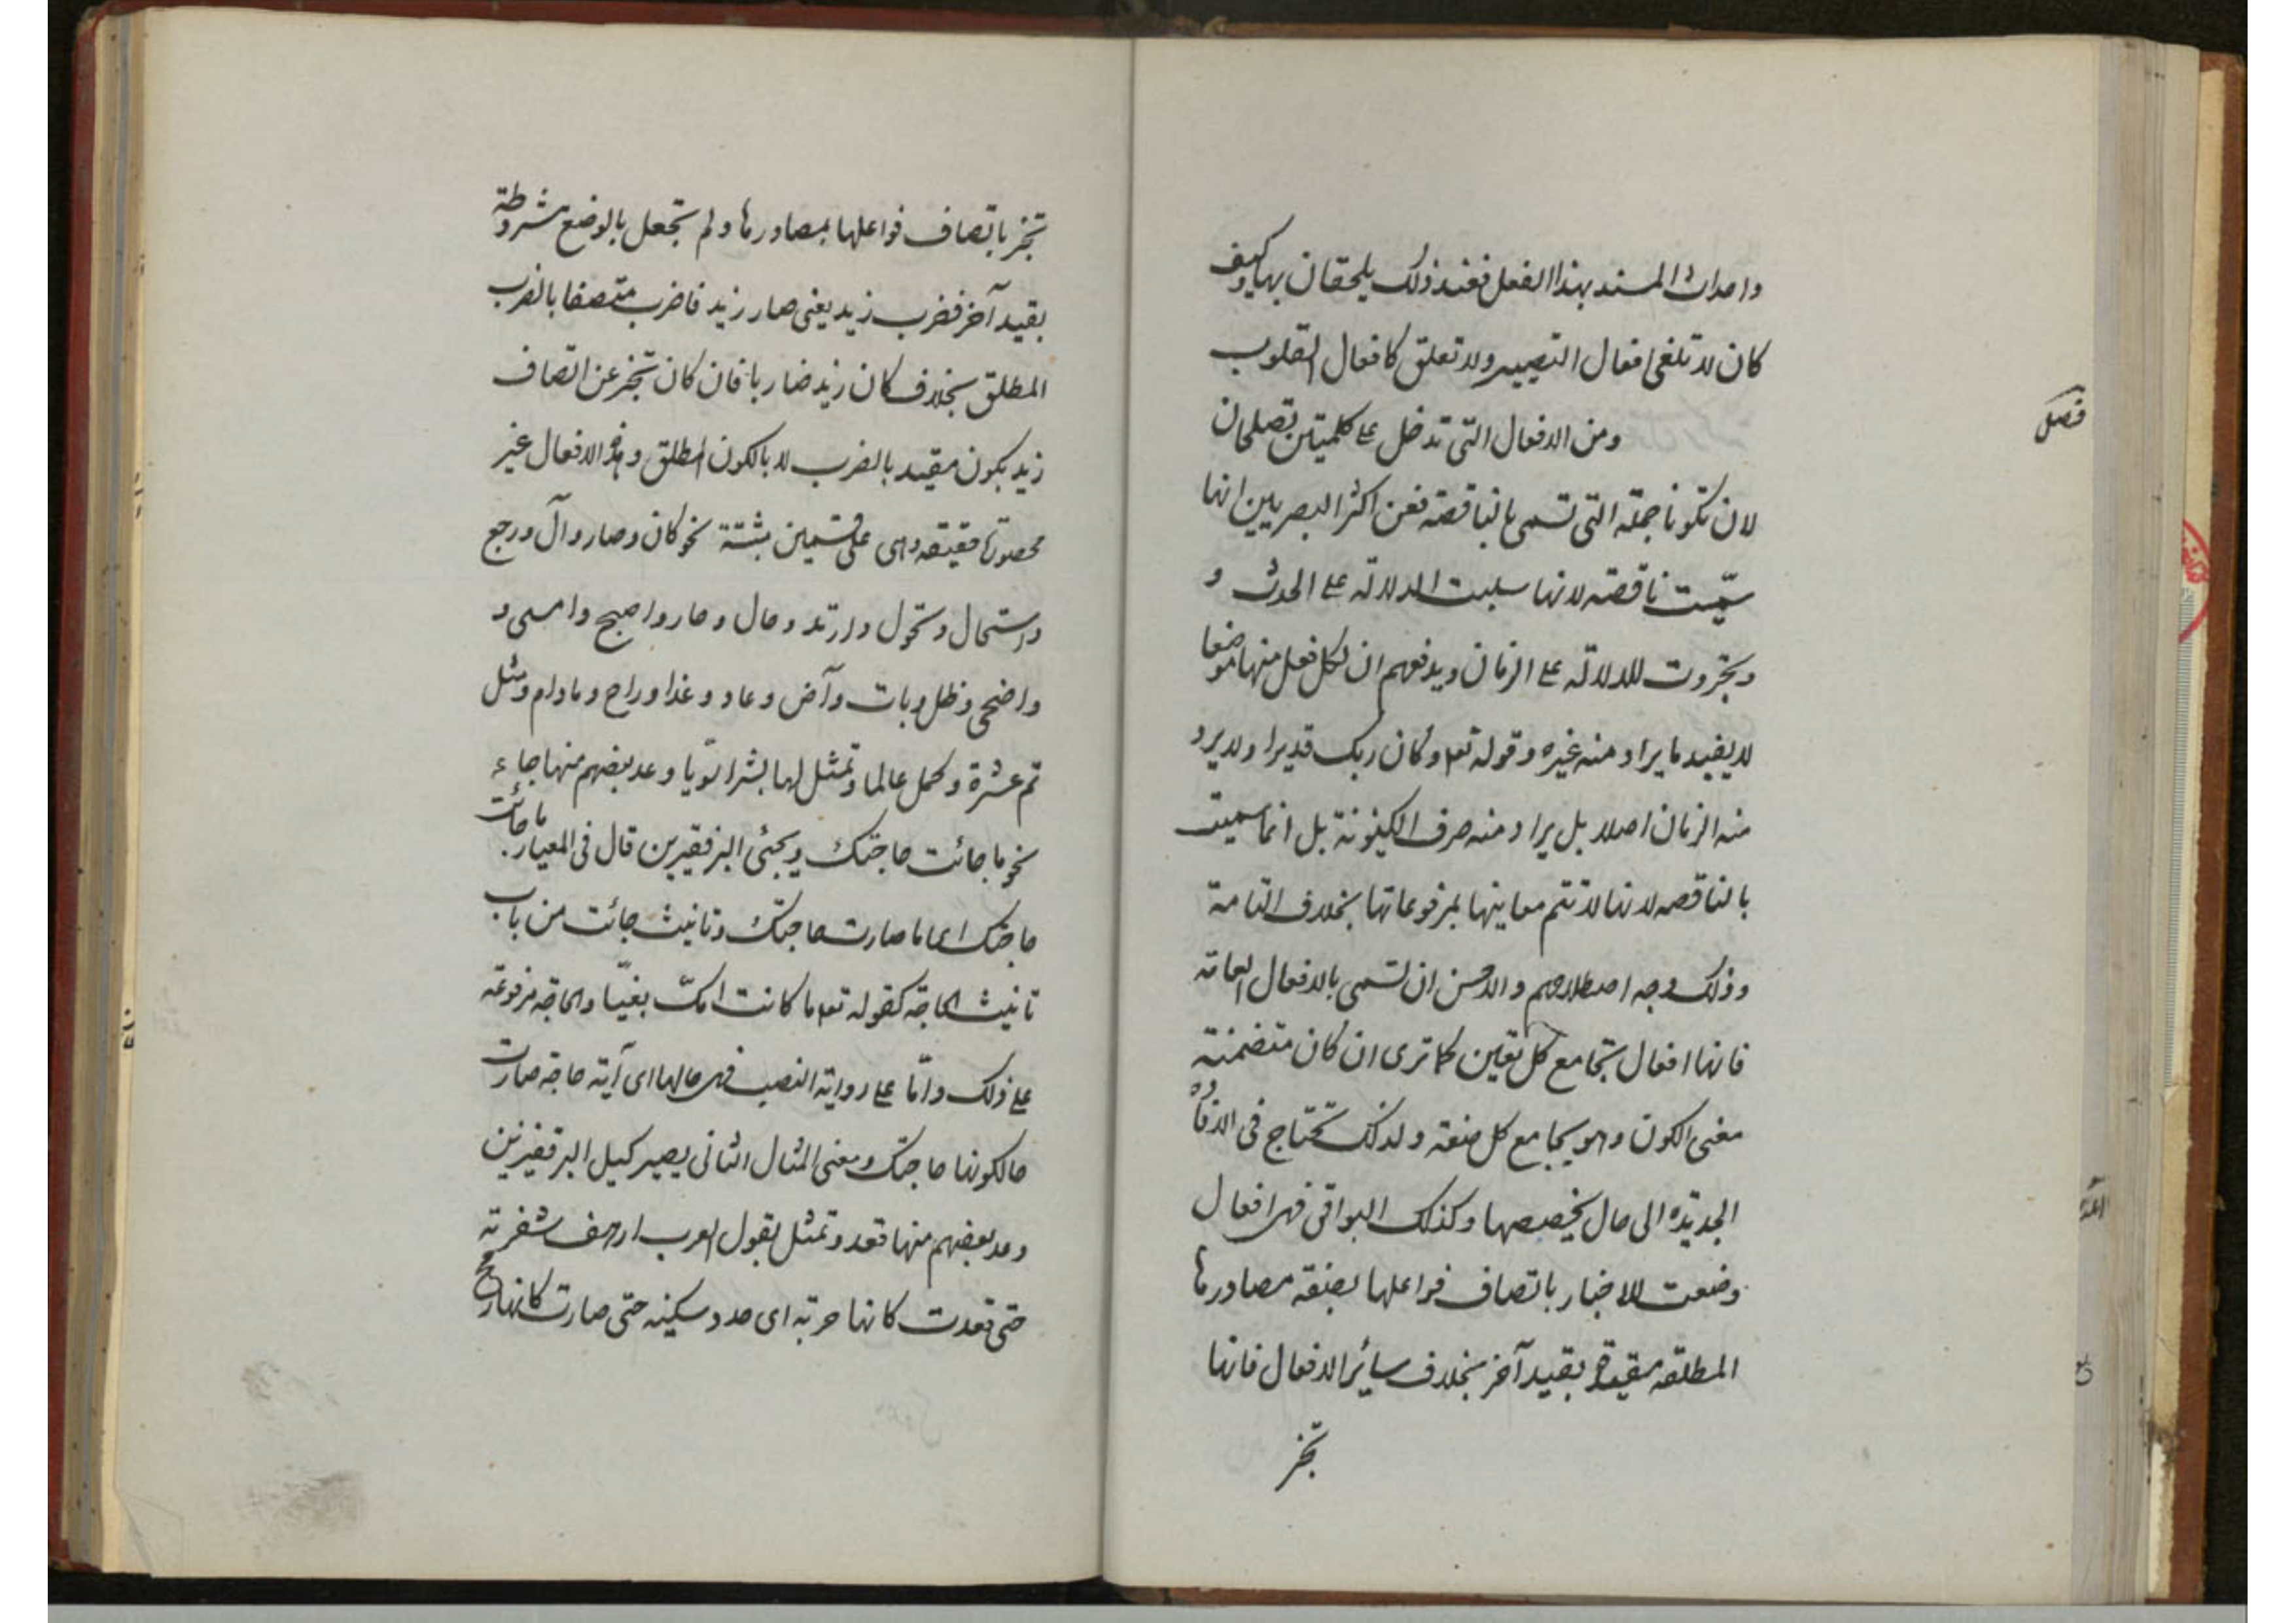 واحداث المسند بهذا الفعل فعند ذلك يلحقان بها وكيف
كان لا تلغى افعال التصيير ولا تعلق كافعال القلوب
فصل
ومن الافعال التى تدخل على كلمتين تصلحان
لان تكونا جملة التى تسمى بالناقصة فعن اكثر البصريين انها
سمّيت ناقصة لانها سلبت الدلالة على الحدث و
وتجردت للدلالة على الزمان ويدفعهم ان لكل فعل منها موضعا
لا يفيد ما يراد منه غيره وقوله تعا وكان ربك قديرا ولا يرد
منه الزمان اصلا بل يراد منه صرف الكينونة بل انما سميت
بالناقصه لانها لا تتم معاينها بمرفوعاتها بخلاف التامة
وذلك وجه اصطلاحهم والاحسن ان تسمى بالافعال العامة
فانها افعال تجامع كل تعين كما ترى ان كان متضمنة
معنى الكون وهو يجامع كل صفة ولذلك تحتاج فى الافادة
الجديدة الى حال يخصصها وكذلك البواقى فهى افعال
وضعت للاخبار باتصاف فواعلها بصفة مصادرها
المطلقة مقيدة بقيد آخر بخلاف سائر الافعال فانها
تخبر
تخبر باتصاف فواعلها بمصادرها ولم تجعل بالوضع مشروطة
بقيد آخر فضرب زيد يعنى صار زيد فاضرب متصفا بالضرب
المطلق بخلاف كان زيد ضاربا فان كان تخبر عن اتصاف
زيد بكون مقيد بالضرب لا بالكون المطلق وهذه الافعال غير
محصورة حقيقة وهى على قسمين مثبتة نحو كان وصار وآل ورجع
واستحال وتحول وارتد وحال وحار واصبح وامسى و
واضحى وظل وبات وآض وعاد وغدا وراح ومادام ومثل
تم عشرة وكمل عالما وتمثل لها بشرا سويّا وعد بعضهم منها جاء
نحو ما جائت حاجتك ويجئى البر قفيرين قال فى المعيار ما جائت
حاجتك اى ما صارت حاجتك وتانيث جائت من باب
تانيث الحاجة كقوله تعا ما كانت امكّ بغيّا والحاجة مرفوعة
على ذلك وامّا على رواية النصب فهى حالها اى آية حاجة صارت
حالكونها حاجتك ومعنى المثال الثانى يصير كيل البر قفيزين
وعد بعضهم منها قعد وتمثل بقول العرب ارهف شفرته
حتى قعدت كانها حربة اى حدد سكينه حتى صارت كانها رمح